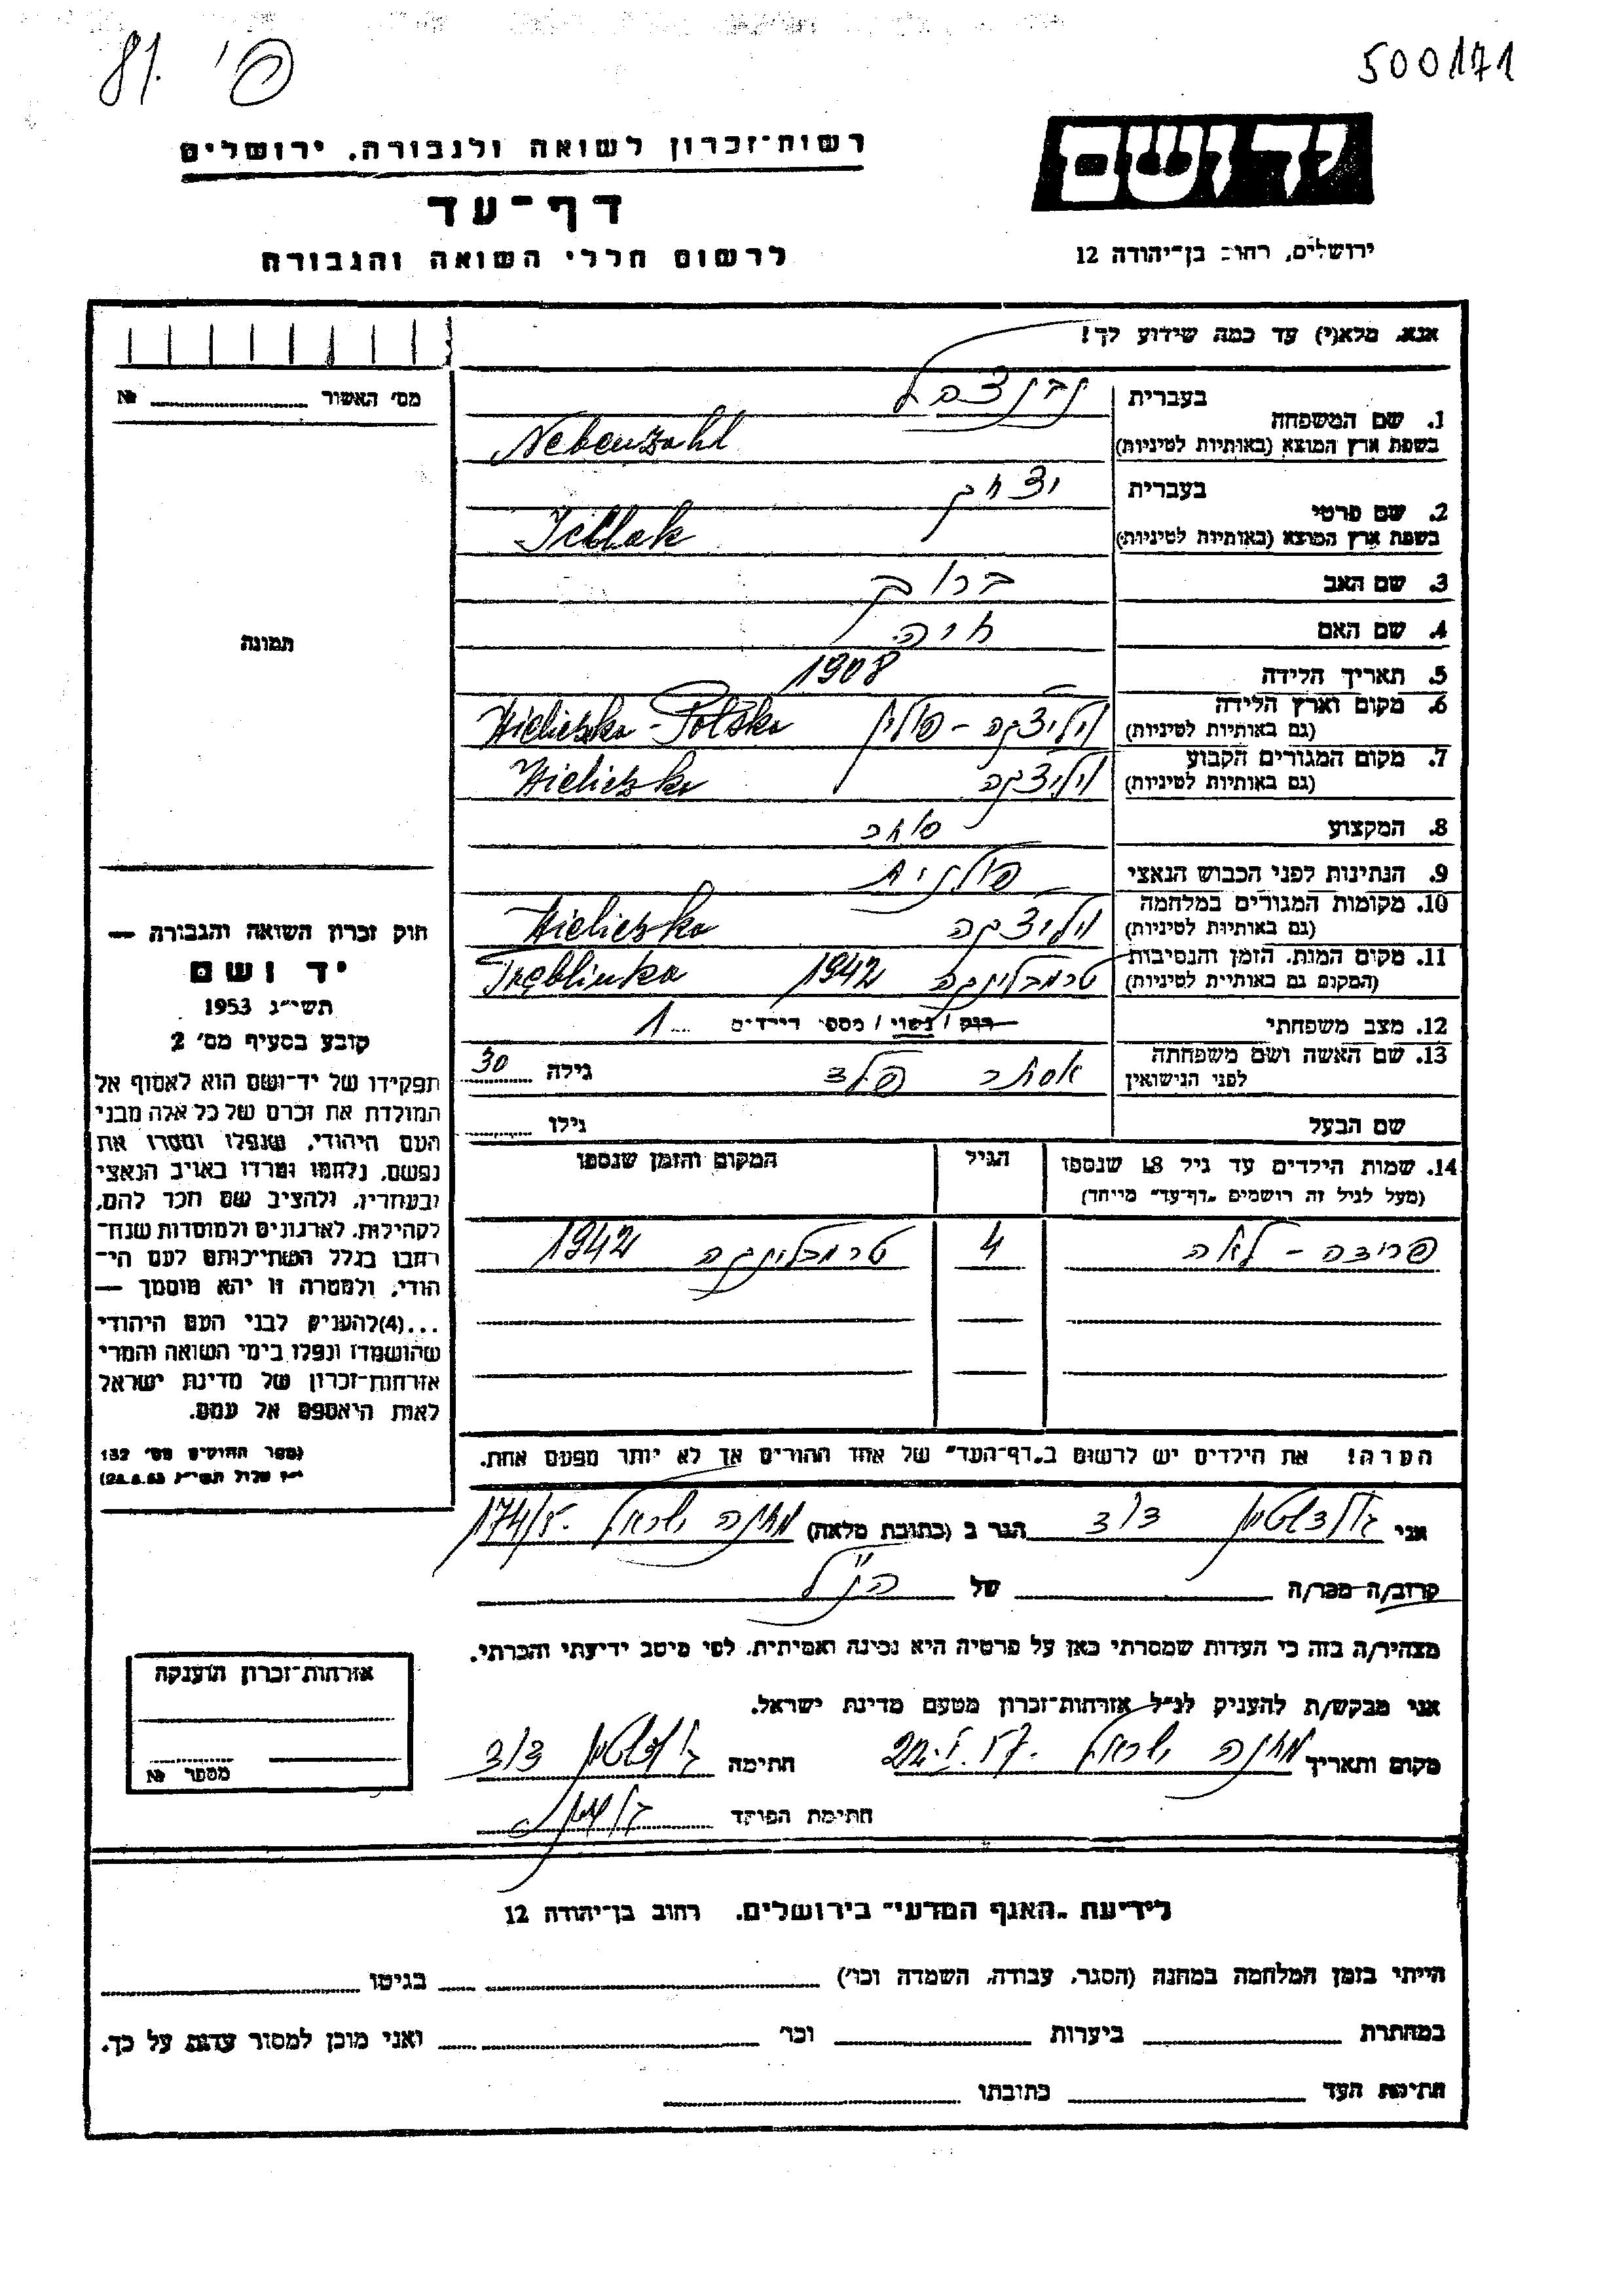 81. פ'
500171
יד ושם
רשות-זכרון לשואה ולגבורה, ירושלים
דף-עד
לרשום חללי השואה והגבורה
ירושלים, רחוב בן-יהודה 12
אנא, מלא(י) עד כמה שידוע לך!
מס' האשור № ........
1. שם המשפחה
בעברית נבנצהל
בשפת ארץ המוצא (באותיות לטיניות) Nebenzahl
2. שם פרטי
בעברית יצחק
בשפת ארץ המוצא (באותיות לטיניות)
3. שם האב ברוך
4. שם האם חיה
תמונה
5. תאריך הלידה 1908
6. מקום וארץ הלידה (גם באותיות לטיניות) ויליצקה - פולין Wieliczka - Polska
7. מקום המגורים הקבוע (גם באותיות לטיניות) ויליצקה Wieliczka
8. המקצוע סוחר
9. הנתינות לפני הכבוש הנאצי פולנית
10. מקומות המגורים במלחמה (גם באותיות לטיניות) ויליצקה Wieliczka
11. מקום המות, הזמן והנסיבות (המקום גם באותיות לטיניות) טרמבלינקה 1942 Tręblinka
12. מצב משפחתי רוק / נשוי / מספר הילדים 1
13. שם האשה ושם משפחתה לפני הנישואין אסתר גילה 30
שם הבעל גילו ........
14. שמות הילדים עד גיל 18 שנספו הגיל המקום והזמן שנספו
(מעל לגיל זה רושמים "דף-עד" מיוחד)
פרידה - לאה 4 טרמבלינקה 1942
הערה! את הילדים יש לרשום ב"דף-העד" של אחד ההורים אך לא יותר מפעם אחת.
חוק זכרון השואה והגבורה —
יד ושם
תשי"ג 1953
קובע בסעיף מס' 2
תפקידו של יד-ושם הוא לאסוף אל
המולדת את זכרם של כל אלה מבני
העם היהודי, שנפלו ומסרו את
נפשם, נלחמו ומרדו באויב הנאצי
ובעוזריו, ולהציב שם וזכר להם,
לקהילות, לארגונים ולמוסדות שנח-
רבו בגלל השתייכותם לעם הי-
הודי, ולמטרה זו יהא מוסמך —
...(4)להעניק לבני העם היהודי
שהושמדו ונפלו בימי השואה והמרי
אזרחות-זכרון של מדינת ישראל
לאות היאספם אל עמם.
(ספר החוקים מס' 132
י"ז אלול תשי"ג 28.8.53)
אני גולדשטיין דוד הגר ב (כתובת מלאה) מחנה ישראל 174/5.
קרוב/ה מכר/ה של הנ"ל
מצהיר/ה בזה כי העדות שמסרתי כאן על פרטיה היא נכונה ואמיתית, לפי מיטב ידיעתי והכרתי.
אני מבקש/ת להעניק לנ"ל אזרחות-זכרון מטעם מדינת ישראל.
מקום ותאריך מחנה ישראל 22.5.57. חתימה גולדשטיין דוד
חתימת הפוקד
אזרחות-זכרון הוענקה
מספר №
לידיעת "האגף המדעי" בירושלים, רחוב בן-יהודה 12
הייתי בזמן המלחמה במחנה (הסגר, עבודה, השמדה וכו') בגיטו
במחתרת ביערות וכו' ואני מוכן למסור עדות על כך.
חתימת העד כתובתו